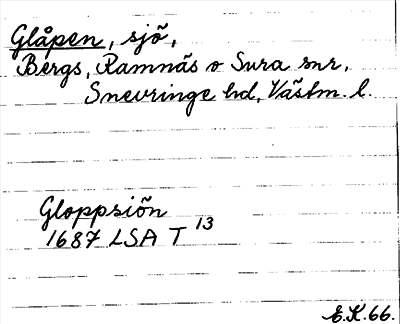 Glåpen, sjö,
Bergs, Ramnäs o Sura snr,
Snevringe hd, Västm. l.
Gloppsiön
1687 LSA T 13
E.K.66.